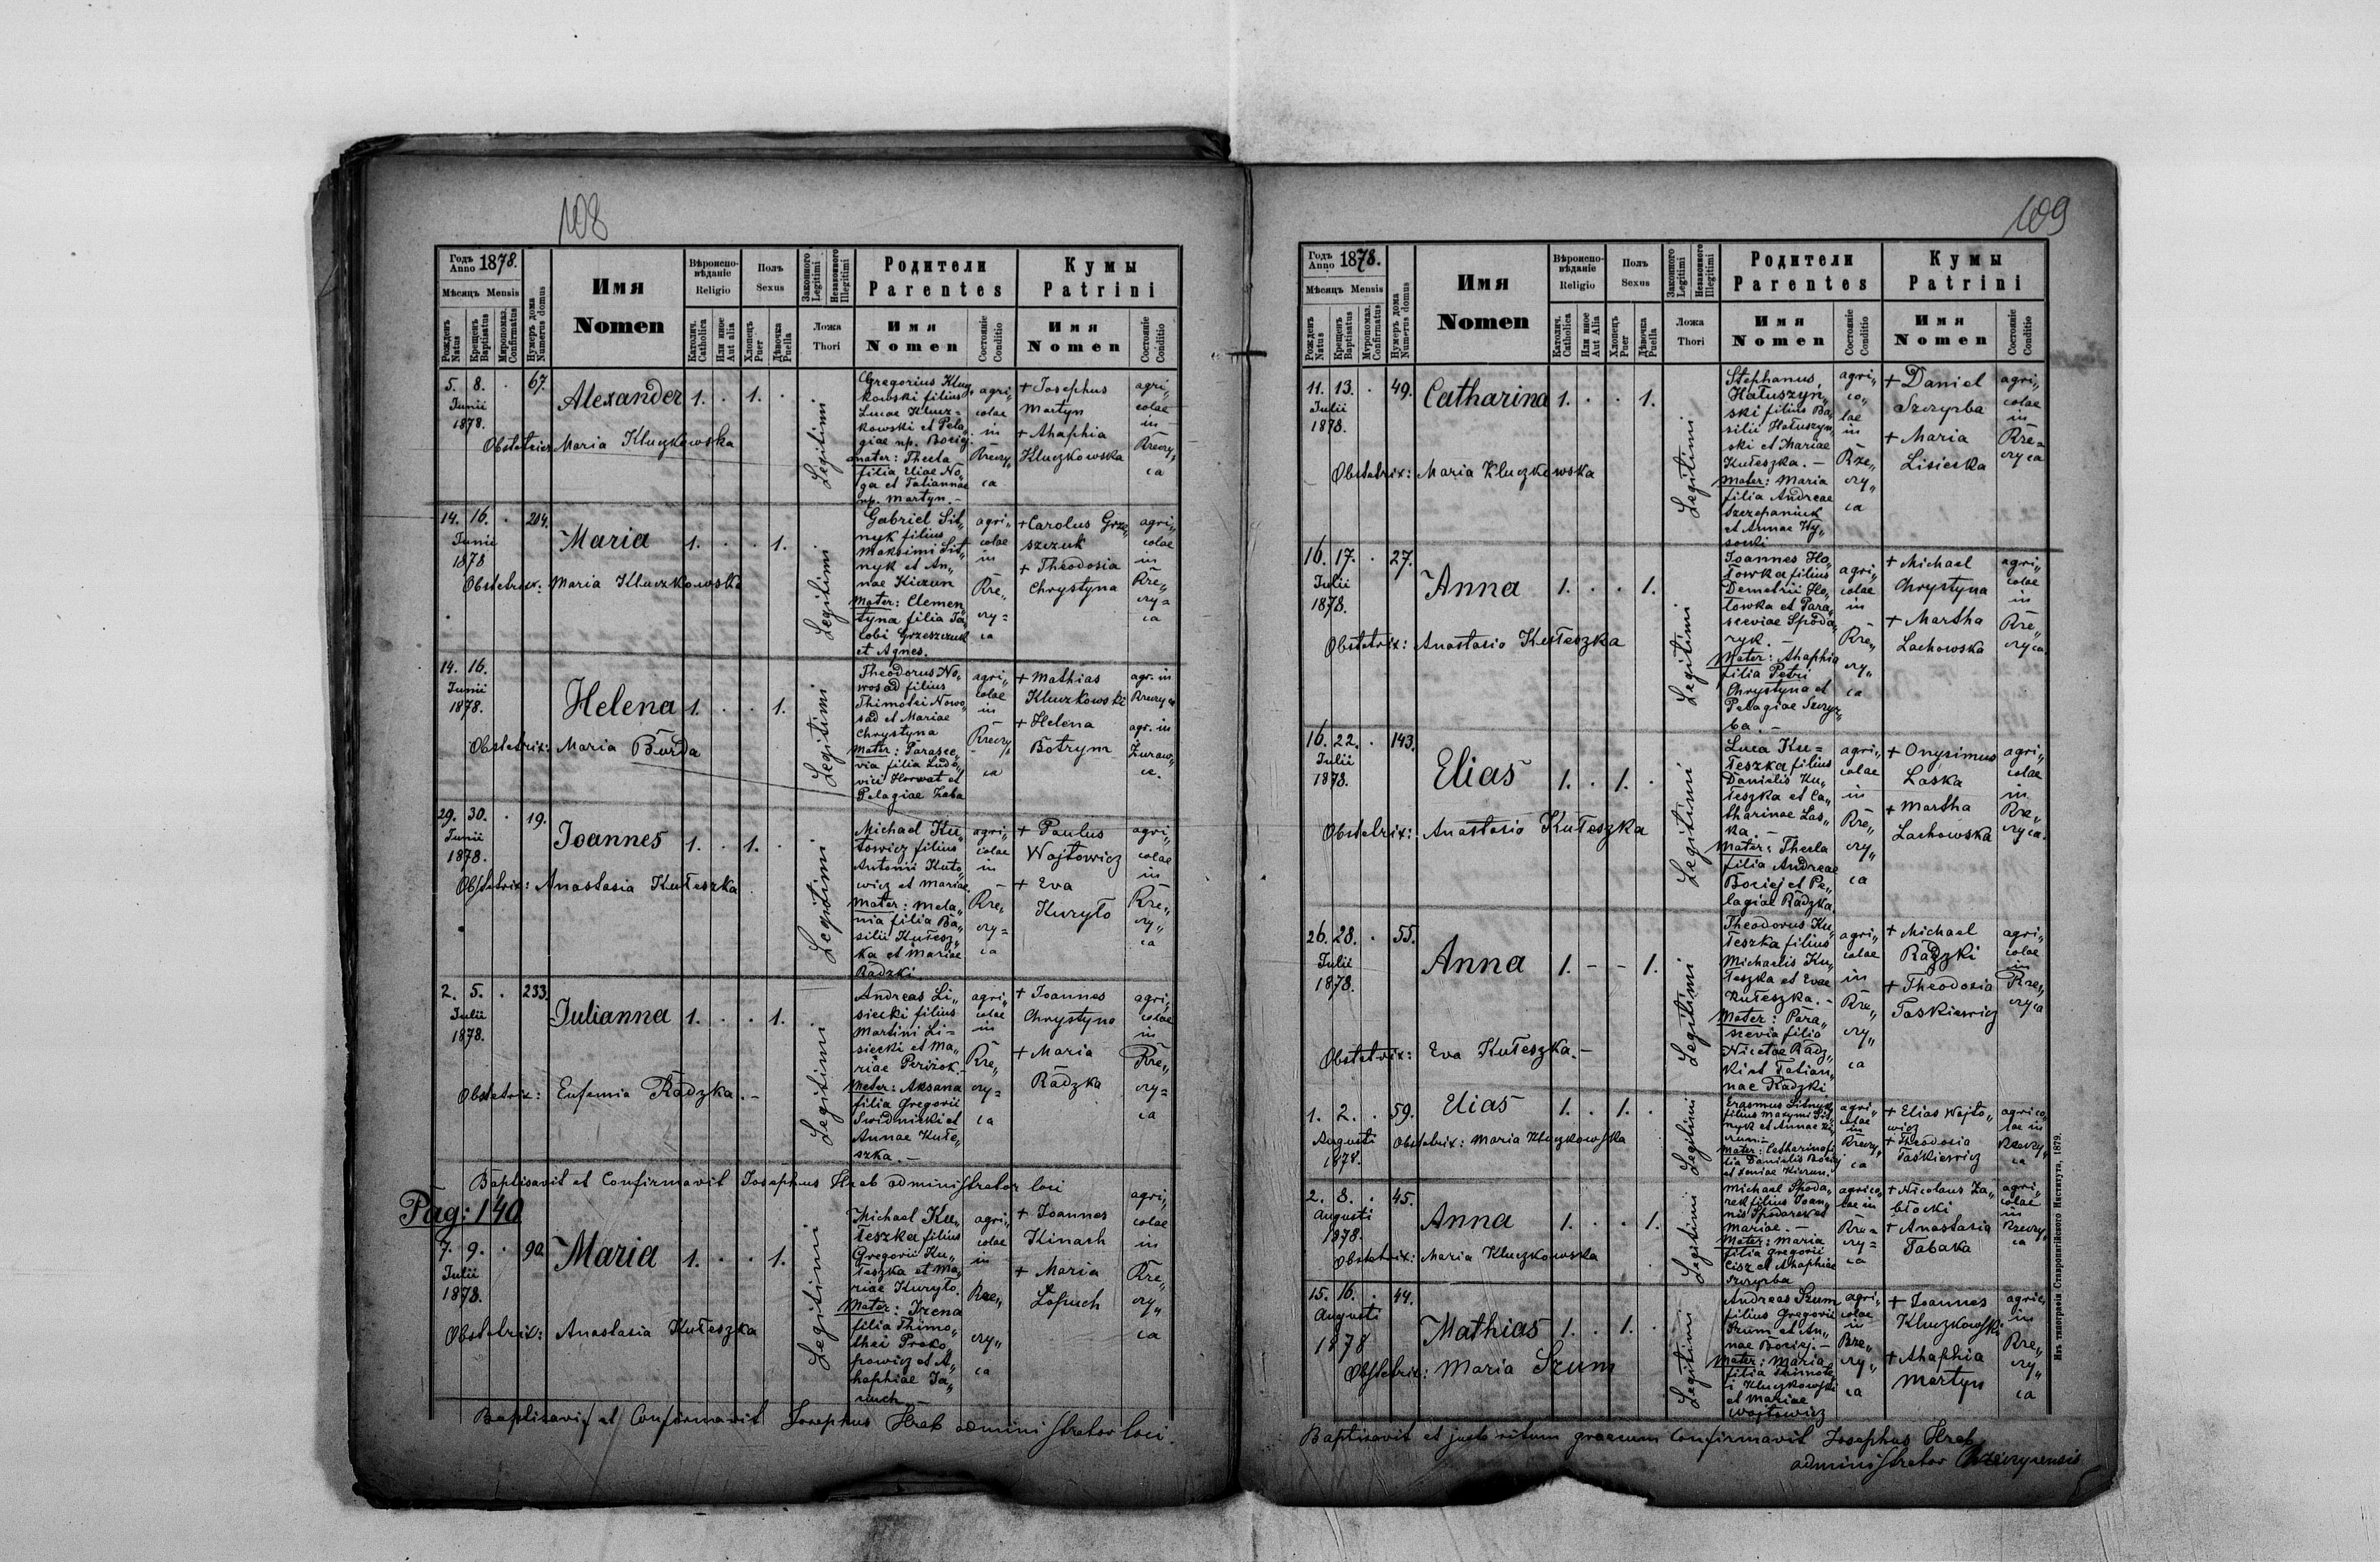 108
Годъ Anno 1878.
Мѣсяцъ Mensis
Рожденъ Natus
Крещенъ Baptisatus
Миропомаз. Confirmatus
Нумеръ дома Numerus domus
Имя
Nomen
Вѣроиспо-
вѣданіе
Religio
Католич. Catholica
Или иное Aut alia
Полъ
Sexus
Хлопецъ Puer
Дѣвочка Puella
Законного Legitimi
Незаконного Illegitimi
Ложа
Thori
Родители
Parentes
Имя
Nomen
Состояніе Conditio
Кумы
Patrini
Имя
Nomen
Состояніе Conditio
5. 8. . 67.
Junii
1878.
Alexander 1. . 1. .
Obstetrix Maria Kluczkowska
Legitimi
Gregorius Klucz„
kowski filius
Lucae Klucz=
kowski et Pela„
giae np. Bociej.
mater: Thecla
filia Eliae No„
ga et Tatiannae
np. Martyn.–
agri„
colae
in
Rzeczy„
ca
+ Josephus
Martyn
+ Ahaphia
Kluczkowska
agri„
colae
in
Rzeczy„
ca
14. 16. . 204.
Junii
1878
Maria 1. . . 1.
Obstetrix: Maria Kluczkowska
Legitimi
Gabriel Sit„
nyk filius
Maksimi Sit„
nyk et An„
nae Kiczun
Mater: Clemen„
tyna filia Ja„
cobi Grzeszczuk
et Agnes.
agri„
colae
in
Rze„
czy=
ca
+ Carolus Grze„
szczuk
+ Theodosia
Chrystyna
agri„
colae
in
Rze„
czy=
ca
14. 16.
Junii
1878.
Helena 1. . . 1.
Obstetrix: Maria Burda
Legitimi
Theodorus No„
wosad filius
Thimotei Nowo„
sad et Mariae
Chrystyna
Mater: Parasce„
via filia Ludo„
vici Horwat et
Pelagiae Zaba
agri„
colae
in
Rzeczy„
ca
+ Mathias
Kluczkowski
+ Helena
Botrym
agr. in
Rzeczyca
agr. in
Zuraw„
ce.
29. 30. . 19.
Junii
1878.
Joannes 1. . 1. .
Obstetrix: Anastasia Kułeszka
Legitimi
Michael Ku„
towicz filius
Antonii Kuto„
wicz et Mariae.
Mater: Mela„
nia filia Ba„
silii Kułesz„
ka et Mariae
Radzki
agri„
colae
in
Rze„
czy=
ca
+ Paulus
Wojtowicz
+ Eva
Kuryło
agri„
colae
in
Rze„
czy„
ca
2. 5. . 233.
Julii
1878.
Julianna 1. . . 1.
Obstetrix: Eufemia Radzka.–
Legitimi
Andreas Li„
siecki filius
Martini Li=
siecki et Ma„
riae Perizok.–
Mater: Aksana
filia Gregorii
Swidnicki et
Annae Kułe„
szka.–
agri„
colae
in
Rze„
czy=
ca
+ Joannes
Chrystyna
+ Maria
Radzka
agri„
colae
in
Rze„
czy=
ca
Baptisavit et Confirmavit Josephus Hrab administrator loci
Pag: 140
7. 9. . 90.
Julii
1878.
Maria 1. . . 1.
Obstetrix: Anastasia Kułeszka
Legitimi
Michael Ku„
łeszka filius
Gregorii Ku„
łeszka et Ma„
riae Kuryło.
Mater: Irena
filia Thimo„
thei Proko„
powicz et A„
haphiae
agri„
colae
in
Rze„
czy„
ca
+ Joannes
Kinash
+ Maria
Łopuch
agri„
colae
in
Rze„
czy„
ca
Baptisavit et Confirmavit Josephus Hrab administrator loci.
109
Годъ Anno 1878.
Мѣсяцъ Mensis
Рожденъ Natus
Крещенъ Baptisatus
Муропомаз. Confirmatus
Нумеръ дома Numerus domus
Имя
Nomen
Вѣроиспо-
вѣданіе
Religio
Католич. Catholica
Или иное Aut Alia
Полъ
Sexus
Хлопецъ Puer
Дѣвочка Puella
Законного Legitimi
Незаконного Illegitimi
Ложа
Thori
Родители
Parentes
Имя
Nomen
Состояніе Conditio
Кумы
Patrini
Имя
Nomen
Состояніе Conditio
11. 13. . 49.
Julii
1878.
Catharina 1. . . 1.
Obstetrix: Maria Kluczkowska
Legitimi
Stephanus
Hałuszyn„
ski filius Ba„
silii Hałuszyn„
ski et Mariae
Kułeszka.–
Mater: Maria
filia Andreae
Szczepaniuk
et Annae Wy„
socki
agri„
co„
lae
in
Rze„
czy„
ca
+ Daniel
Szczyrba
+ Maria
Lisiecka
agri„
colae
in
Rze=
czyca
16. 17. . 27.
Julii
1878.
Anna 1. . . 1.
Obstetrix: Anastasia Kułeszka
Legitimi
Joannes Ho„
łowka filius
Demetrii Ho„
łowka et Para„
sceviae Spoda„
ryk.–
Mater: Ahaphia
filia Petri
Chrystyna et
Pelagiae Szczyr„
ba.–
agri„
colae
in
Rze„
czy„
ca
+ Michael
Chrystyna
+ Martha
Lachowska
agri„
colae
in
Rze„
czyca.
16. 22. . 143.
Julii
1878.
Elias 1. . 1. .
Obstetrix: Anastasia Kułeszka
Legitimi
Luca Ku=
łeszka filius
Danielis Ku„
łeszka et Ca„
tharinae Las„
ka.–
Mater: Thecla
filia Andreae
Bociej et Pe„
lagiae Radzka.
agri„
colae
in
Rze„
czy„
ca
+ Onysimus
Laska
+ Martha
Lachowska
agri„
colae
in
Rze„
czyca.
26. 28. . 55.
Julii
1878.
Anna 1. – – 1.
Obstetrix: Eva Kułeszka.–
Legitimi
Theodorus Ku„
łeszka filius
Michaelis Ku„
łeszka et Evae
Kułeszka.–
Mater: Para„
scevia filia
Nicetae Radz„
ki et Tatian„
nae Radzki
agri„
colae
in
Rze„
czy„
ca
+ Michael
Radzki
+ Theodosia
Taskiewicz
agri„
colae
in
Rze„
czyca
1. 2. . 59.
Augusti
1878.
Elias 1. . 1. .
Obstetrix: Maria Kluczkowska
Legitimi
Erasmus Sitnyk
filius Maxymi Sit„
nyk et Annae Ki„
czun–
Mater: Catharina fi„
lia Danielis Bociej
et Xeniae Kiczun.
agri„
colae
in
Rzeczy„
ca
+ Elias Wojto„
wicz
+ Theodosia
Taskiewicz
agrico„
lae in
Rzeczy„
ca
2. 8. . 45.
Augusti
1878.
Anna 1. . . 1.
Obstetrix: Maria Kluczkowska
Legitimi
Michael Spoda„
rek filius Joan„
nis Spodarek et
Mariae.–
Mater: Maria
filia Gregorii
Cisz et Ahaphiae
Szczyrba
agrico„
lae in
Rze=
czy=
ca
+ Nicolaus Za„
błocki
+ Anastasia
Tabaka
agri„
colae
in
Rzeczy„
ca
15. 16. . 44.
Augusti
1878
Mathias 1. . 1. .
Obstetrix: Maria Szum
Legitimi
Andreas Szum
filius Gregorii
Szum et An„
nae Bociej.–
Mater: Maria
filia Thimote„
i Kluczkowski
et Mariae
Wojtowicz
agri„
colae
in
Rze„
czy„
ca
+ Joannes
Kluczkowski
+ Ahaphia
Martyn
agric.
in
Rze„
czy„
ca
Baptisavit et juxta ritum graecum Confirmavit Josephus Hrab
administrator Rzeczycensis
Изъ типографіи Ставропигійского Института, 1879.